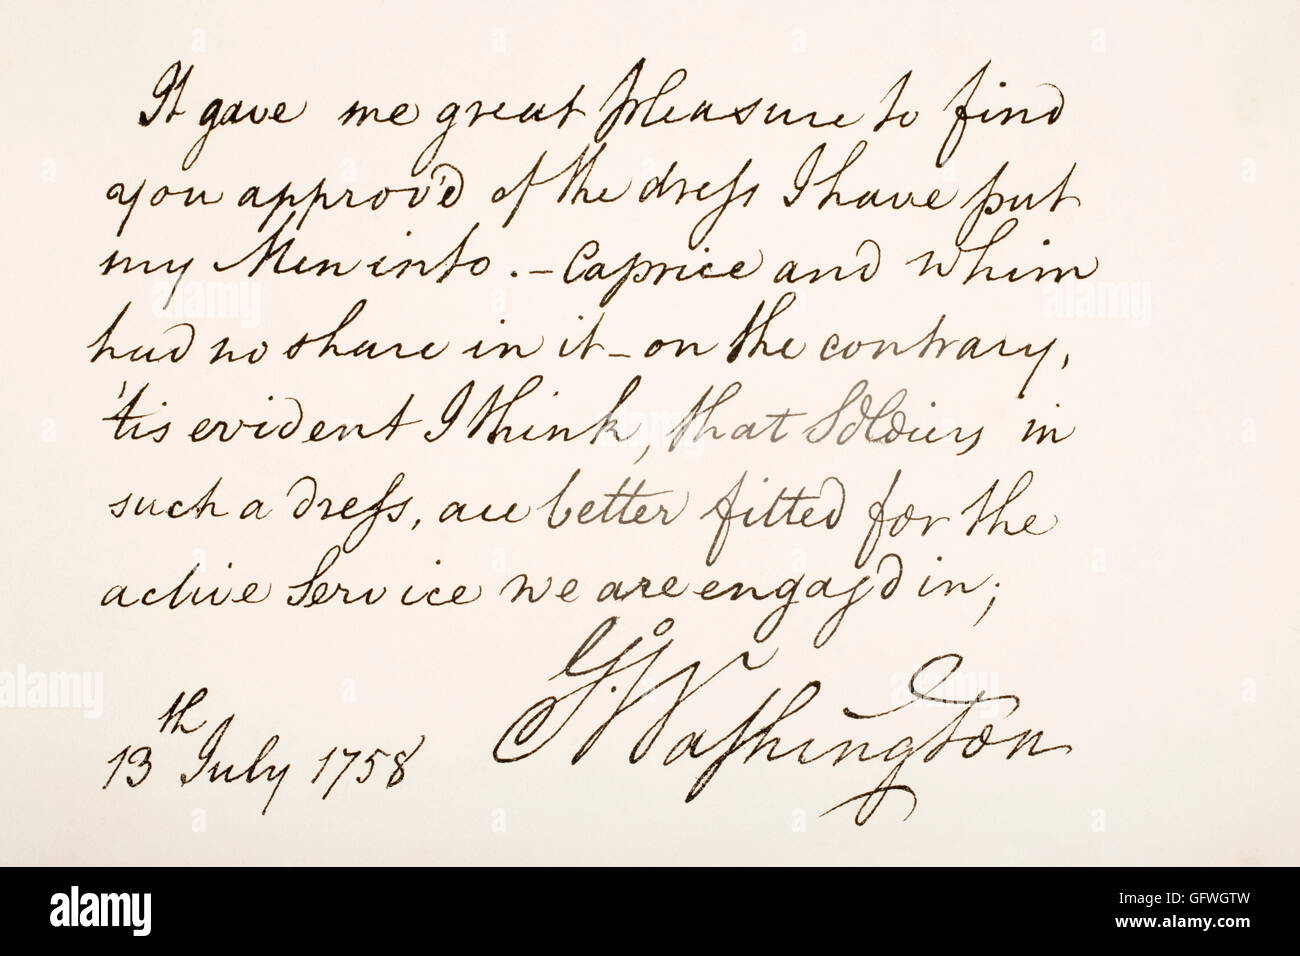 It gave me great pleasure to find
you approv'd of the dreſs I have put
my Men into. – Caprice and whim
had no share in it – on the contrary,
'tis evident I think, that Soldiers in
such a dreſs, are better fitted for the
active Service we are engag'd in;
Go. Washington
13th July 1758
alamy
Image ID: GFWGTW
www.alamy.com